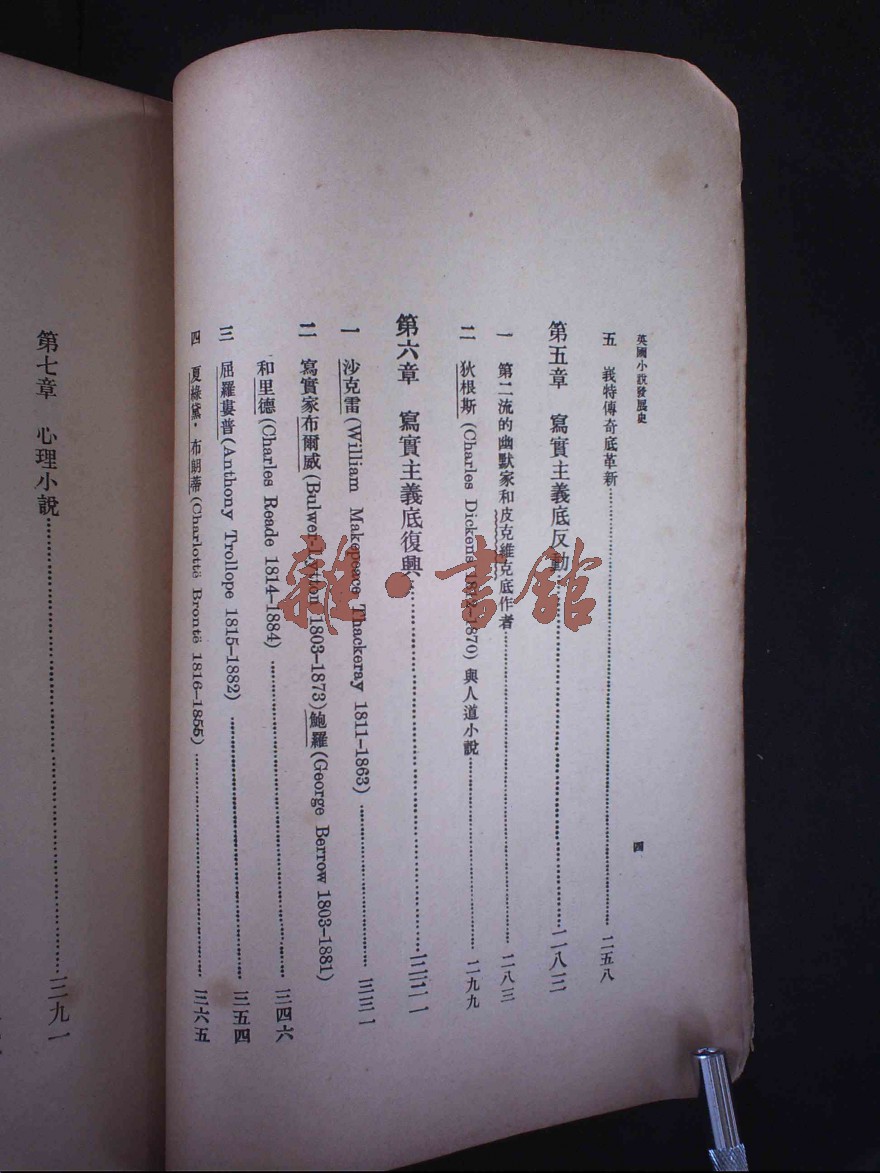 英國小說發展史
四
五 峩特傳奇底革新……二五八
第五章 寫實主義底反動……二八三
一 第二流的幽默家和皮克維克底作者……二八三
二 狄根斯(Charles Dickens 1812–1870)與人道小說……二九九
第六章 寫實主義底復興……三三一
一 沙克雷(William Makepeace Thackeray 1811–1863)……三三一
二 寫實家布爾威(Bulwer-Lytton 1803–1873)鮑羅(George Berrow 1803–1881)
和里德(Charles Reade 1814–1884)……三四六
三 屈羅婁普(Anthony Trollope 1815–1882)……三五四
四 夏綠黛·布朗蒂(Charlottë Brontë 1816–1855)……三六五
第七章 心理小說……三九一
雜·書館